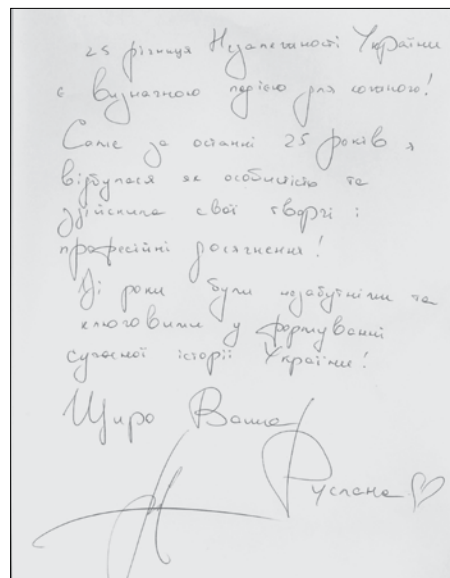 25 річниця Незалежності України
є визначною подією для кожного!
Саме за останні 25 років я
відбулася як особистість та
здійснила свої творчі і
професійні досягнення!
Ці роки були незабутніми та
ключовими у формуванні
сучасної історії України!
Щиро Ваша
Руслана